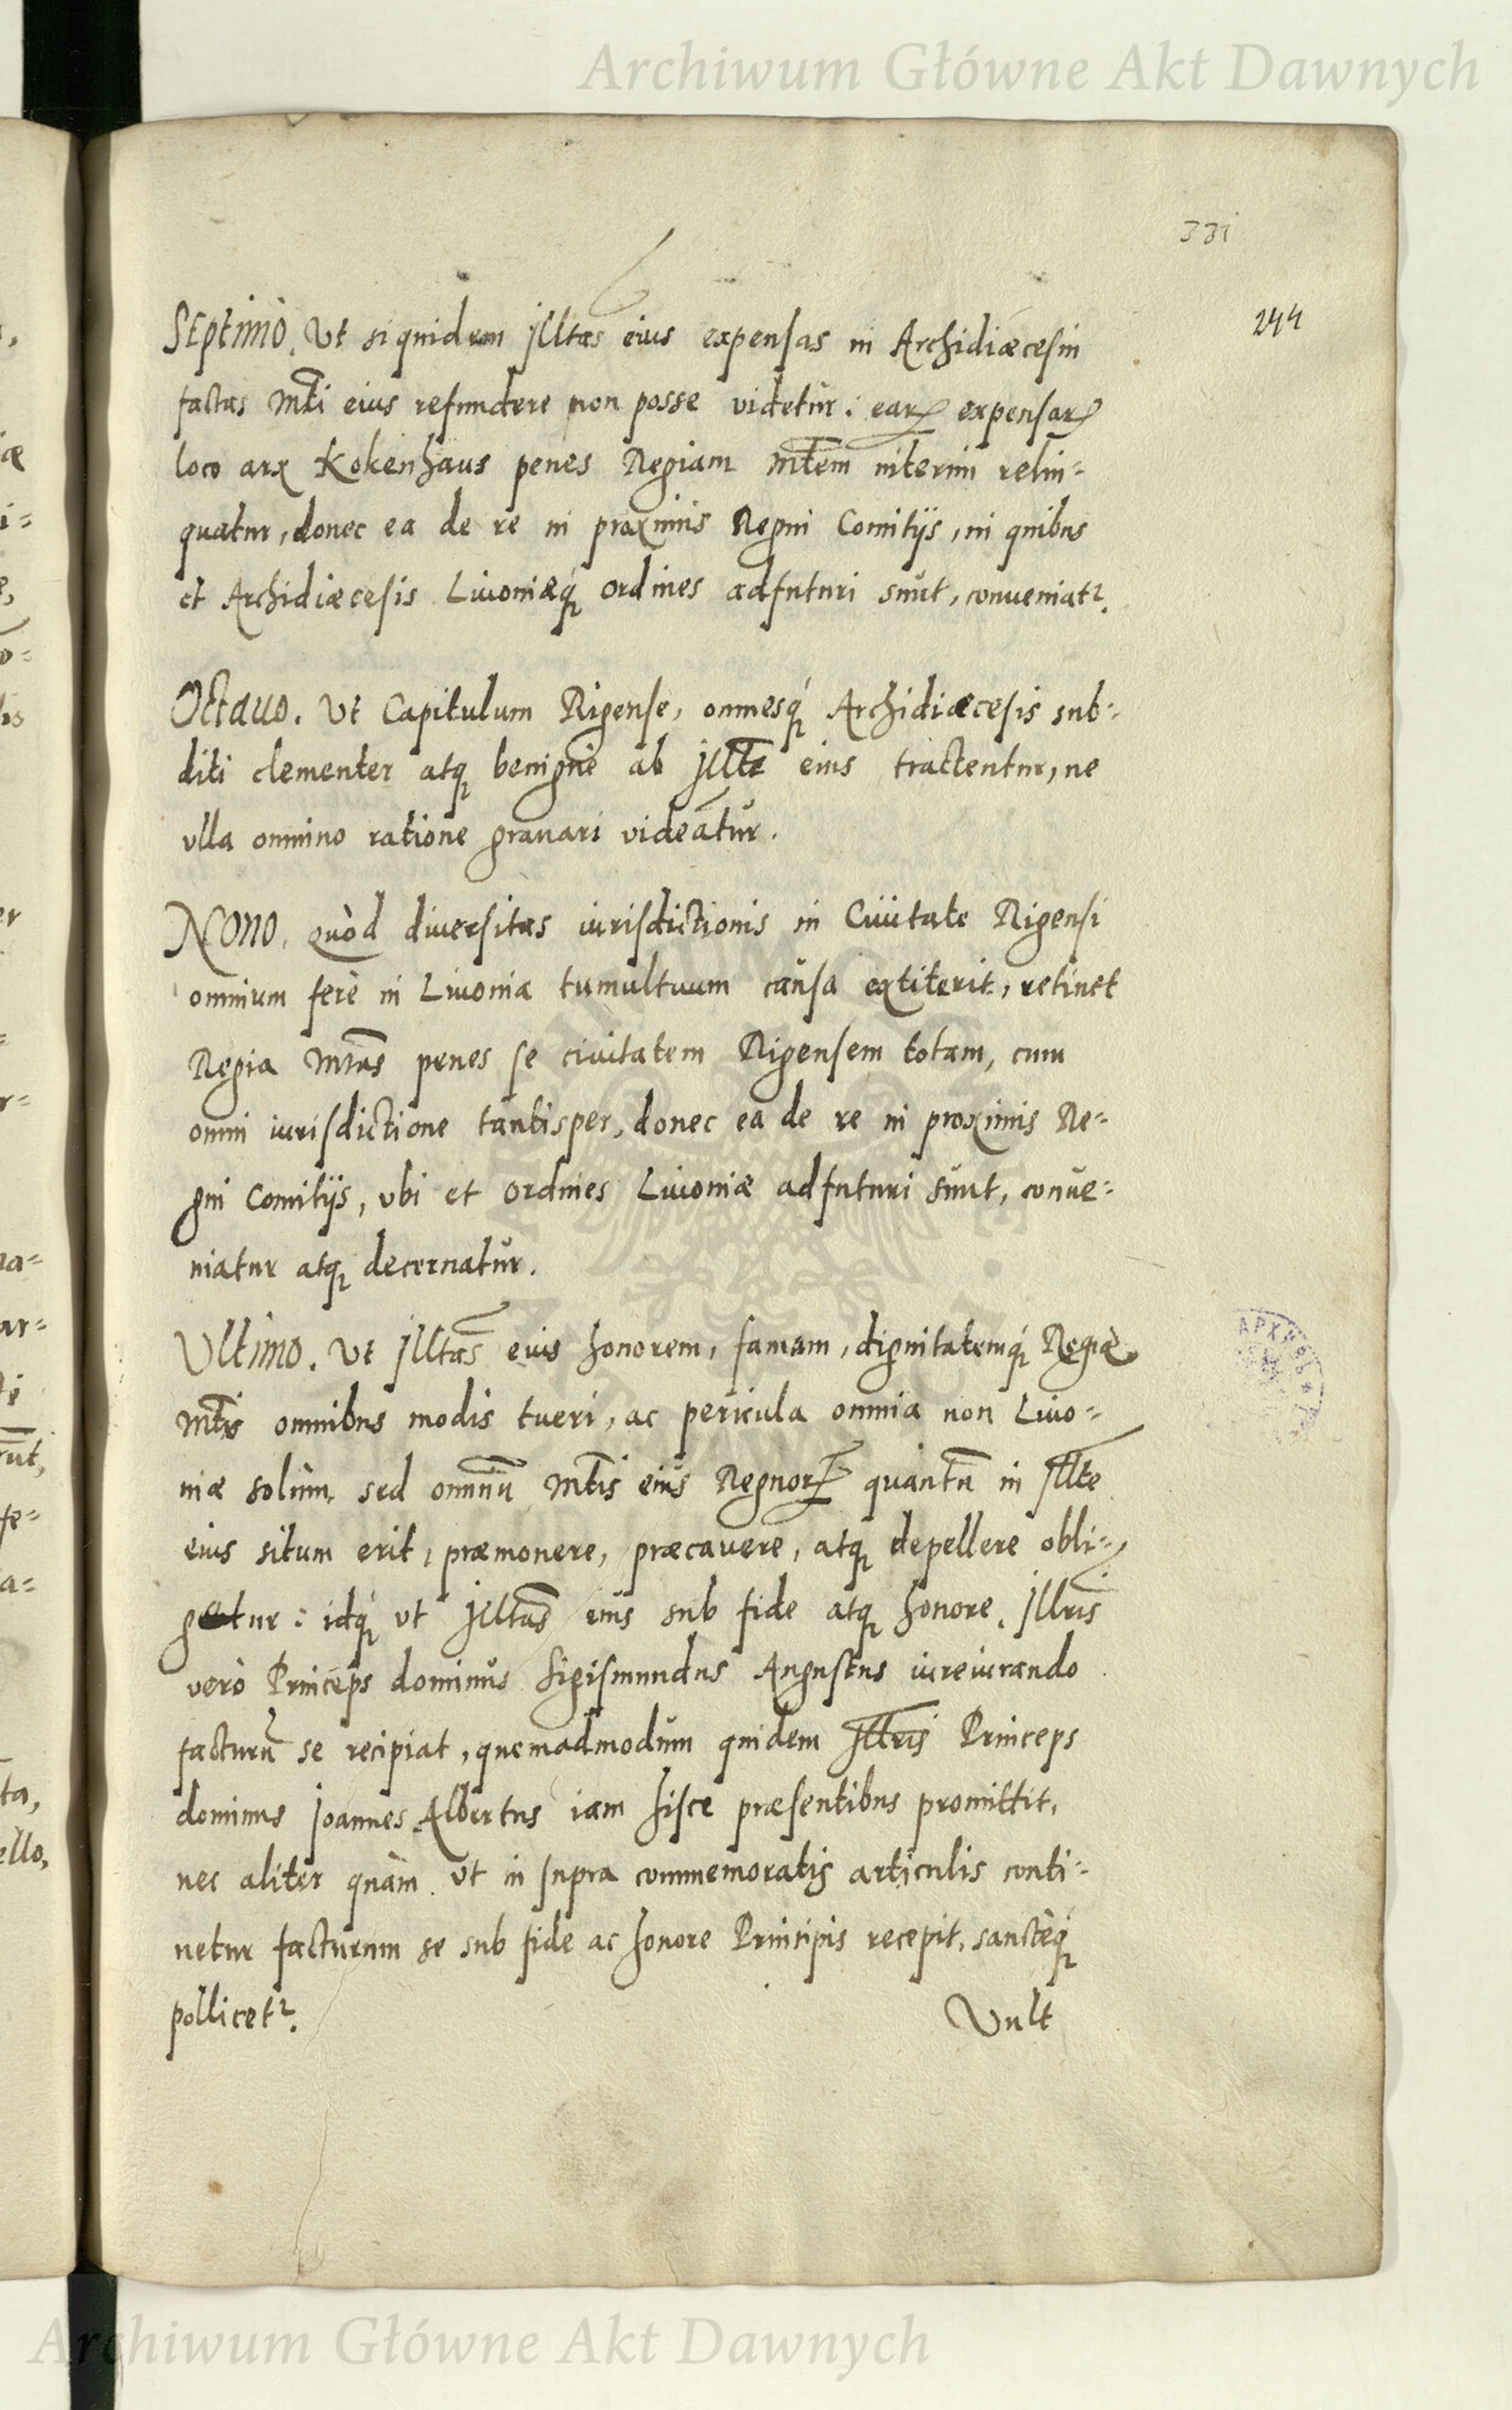 Archiwum Główne Akt Dawnych
331
244
Septimò. Ut siquidem Jlltas eius expensas in Archidiæcesin
factas Mti eius refundere non posse videtur: earꝝ expensarꝝ
loco arx Kokenhaus penes Regiam Mtem interim relin=
quatur, donec ea de re in proximis Regni Comitijs, in quibus
et Archidiæcesis Liuoniæq́ꝫ ordines adfuturi sunt, conueniatr.
Octauo. Ut Capitulum Rigense, omnesq́ꝫ Archidiæcesis sub=
diti clementer atqꝫ benignè ab Jllte eius tractentur, ne
vlla omnino ratione grauari videātur.
Nono. quòd diuersitas iurisdictionis in Ciuitate Rigensi
omnium ferè in Liuonia tumultuum causa extiterit, retinet
Regia Mtas penes se ciuitatem Rigensem totam, cum
omni iurisdictione tantisper, donec ea de re in proximis Re=
gni Comitijs, vbi et ordines Liuoniæ adfuturi sunt, conue=
niatur atqꝫ decernatur.
Ultimo. Ut Jlltas eius honorem, famam, dignitatemq́ꝫ Regiæ
Mtis omnibus modis tueri, ac pericula omnia non Liuo=
niæ solùm, sed omniū Mtis eius Regnorꝝ quantū in Jllte
eius situm erit, præmonere, præcauere, atqꝫ depellere obli=
getur: idq́ꝫ vt Jlltas eius sub fide atqꝫ honore, Jllris
verò Princeps dominus Sigismundus Augustus iureiurando
facturū se recipiat, quemadmodum quidem Jllris Princeps
dominus Joannes Albertus iam hisce præsentibus promittit,
nec aliter quàm vt in supra commemoratis articulis conti=
netur facturum se sub fide ac honore Principis recepit, sanctèq́ꝫ
pollicetr.
Vult
Archiwum Główne Akt Dawnych